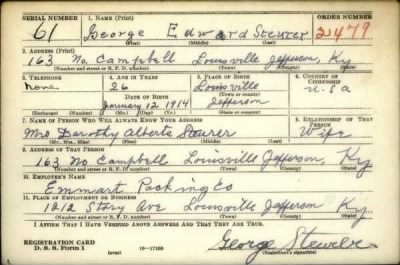 SERIAL NUMBER 1. NAME (Print) ORDER NUMBER
61 George Edward Steurer 2479
(First) (Middle) (Last)
2. ADDRESS (Print)
163 No. Campbell Louisville Jefferson, Ky
(Number and street or R. F. D. number) (Town) (County) (State)
3. TELEPHONE 4. AGE IN YEARS 5. PLACE OF BIRTH 6. COUNTRY OF CITIZENSHIP
None 26 Louisville U.S.A
DATE OF BIRTH (Town or county)
January 12 1914 Jefferson
(Exchange) (Number) (Mo.) (Day) (Yr.) (State or country)
7. NAME OF PERSON WHO WILL ALWAYS KNOW YOUR ADDRESS 8. RELATIONSHIP OF THAT PERSON
Mrs Dorothy Alberta Steurer Wife
(Mr., Mrs., Miss) (First) (Middle) (Last)
9. ADDRESS OF THAT PERSON
163 No Campbell Louisville Jefferson, Ky
(Number and street or R. F. D. number) (Town) (County) (State)
10. EMPLOYER'S NAME
Emmart Packing Co
11. PLACE OF EMPLOYMENT OR BUSINESS
1212 Story Ave Louisville Jefferson Ky
(Number and street or R. F. D. number) (Town) (County) (State)
I AFFIRM THAT I HAVE VERIFIED ABOVE ANSWERS AND THAT THEY ARE TRUE.
REGISTRATION CARD George Steurer
D. S. S. Form 1 (Registrant's signature)